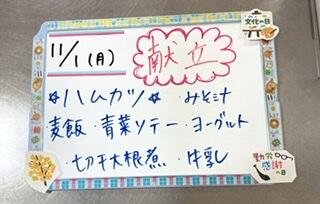 文化の日
11/1(月) 献立
☆ハムカツ☆ ・みそ汁
・麦飯 ・青菜ソテー ・ヨーグルト
・切干大根煮 ・牛乳
勤労
感謝
の日